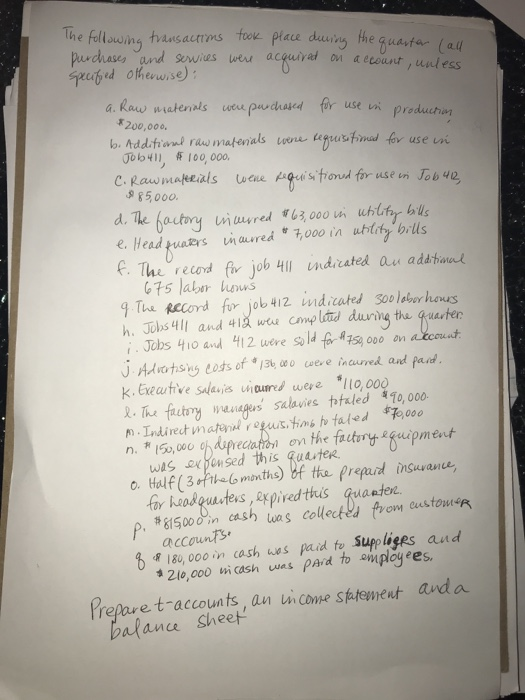 The following transactions took place during the quarter (all
purchases and services were acquired on account, unless
specified otherwise):
a. Raw materials were purchased for use in production
$200,000.
b. Additional raw materials were requisitioned for use in
Job 411, $100,000.
C. Raw materials were requisitioned for use in Job 412,
$85,000.
d. The factory incurred $63,000 in utility bills
e. Headquaters incurred $7,000 in utility bills
f. The record for job 411 indicated an additional
675 labor hours
g. The Record for job 412 indicated 300 labor hours
h. Jobs 411 and 412 were completed during the quarter
i. Jobs 410 and 412 were sold for $750,000 on account.
j. Advertising costs of $136,000 were incurred and paid.
K. Executive salaries incurred were $110,000
l. The factory managers' salaries totaled $90,000
m. Indirect material requisitions totaled $70,000
n. $150,000 of depreciation on the factory equipment
was expensed this quarter
o. Half (3 of the 6 months) of the prepaid insurance,
for headquarters, expired this quarter.
p. $815000 in cash was collected from customer
accounts.
q $180,000 in cash was paid to suppliers and
$210,000 in cash was paid to employees.
Prepare t-accounts, an income statement and a
balance sheet